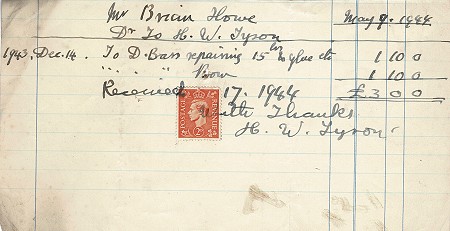 Mr Brian Howe May 9. 1944
Dr To H. W. Tyson
1943. Dec. 14. To D. Bass repairing 15 hrs & glue etc 1 10 0
" " " " Bow 1 10 0
Received 17. 1944 £3 0 0
With Thanks
H. W. Tyson
POSTAGE REVENUE